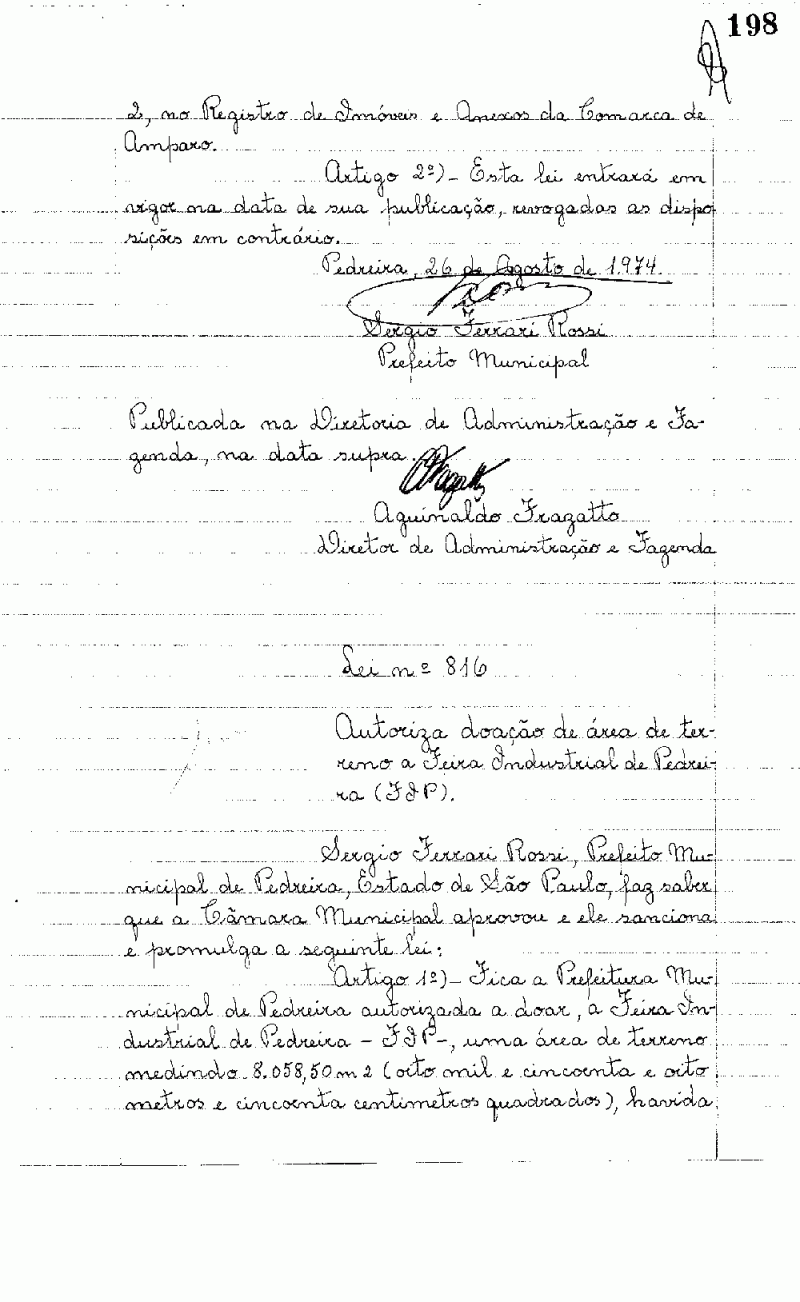 198
2, no Registro de Imóveis e Anexos da Comarca de
Amparo.
Artigo 2º)- Esta lei entrará em
vigor na data de sua publicação, revogadas as dispo
sições em contrário.
Pedreira, 26 de Agosto de 1.974.
Sergio Ferrari Rossi
Prefeito Municipal
Publicada na Diretoria de Administração e Fa-
zenda, na data supra.
Aguinaldo Fragatto
Diretor de Administração e Fazenda
Lei nº 816
Autoriza doação de área de ter-
reno a Feira Industrial de Pedrei-
ra (FIP).
Sergio Ferrari Rossi, Prefeito Mu-
nicipal de Pedreira, Estado de São Paulo, faz saber
que a Câmara Municipal aprovou e ele sanciona
e promulga a seguinte lei:
Artigo 1º)- Fica a Prefeitura Mu-
nicipal de Pedreira autorizada a doar, à Feira In-
dustrial de Pedreira - FIP-, uma área de terreno
medindo 8.058,50 m2 (oito mil e cincoenta e oito
metros e cincoenta centimetros quadrados), havida